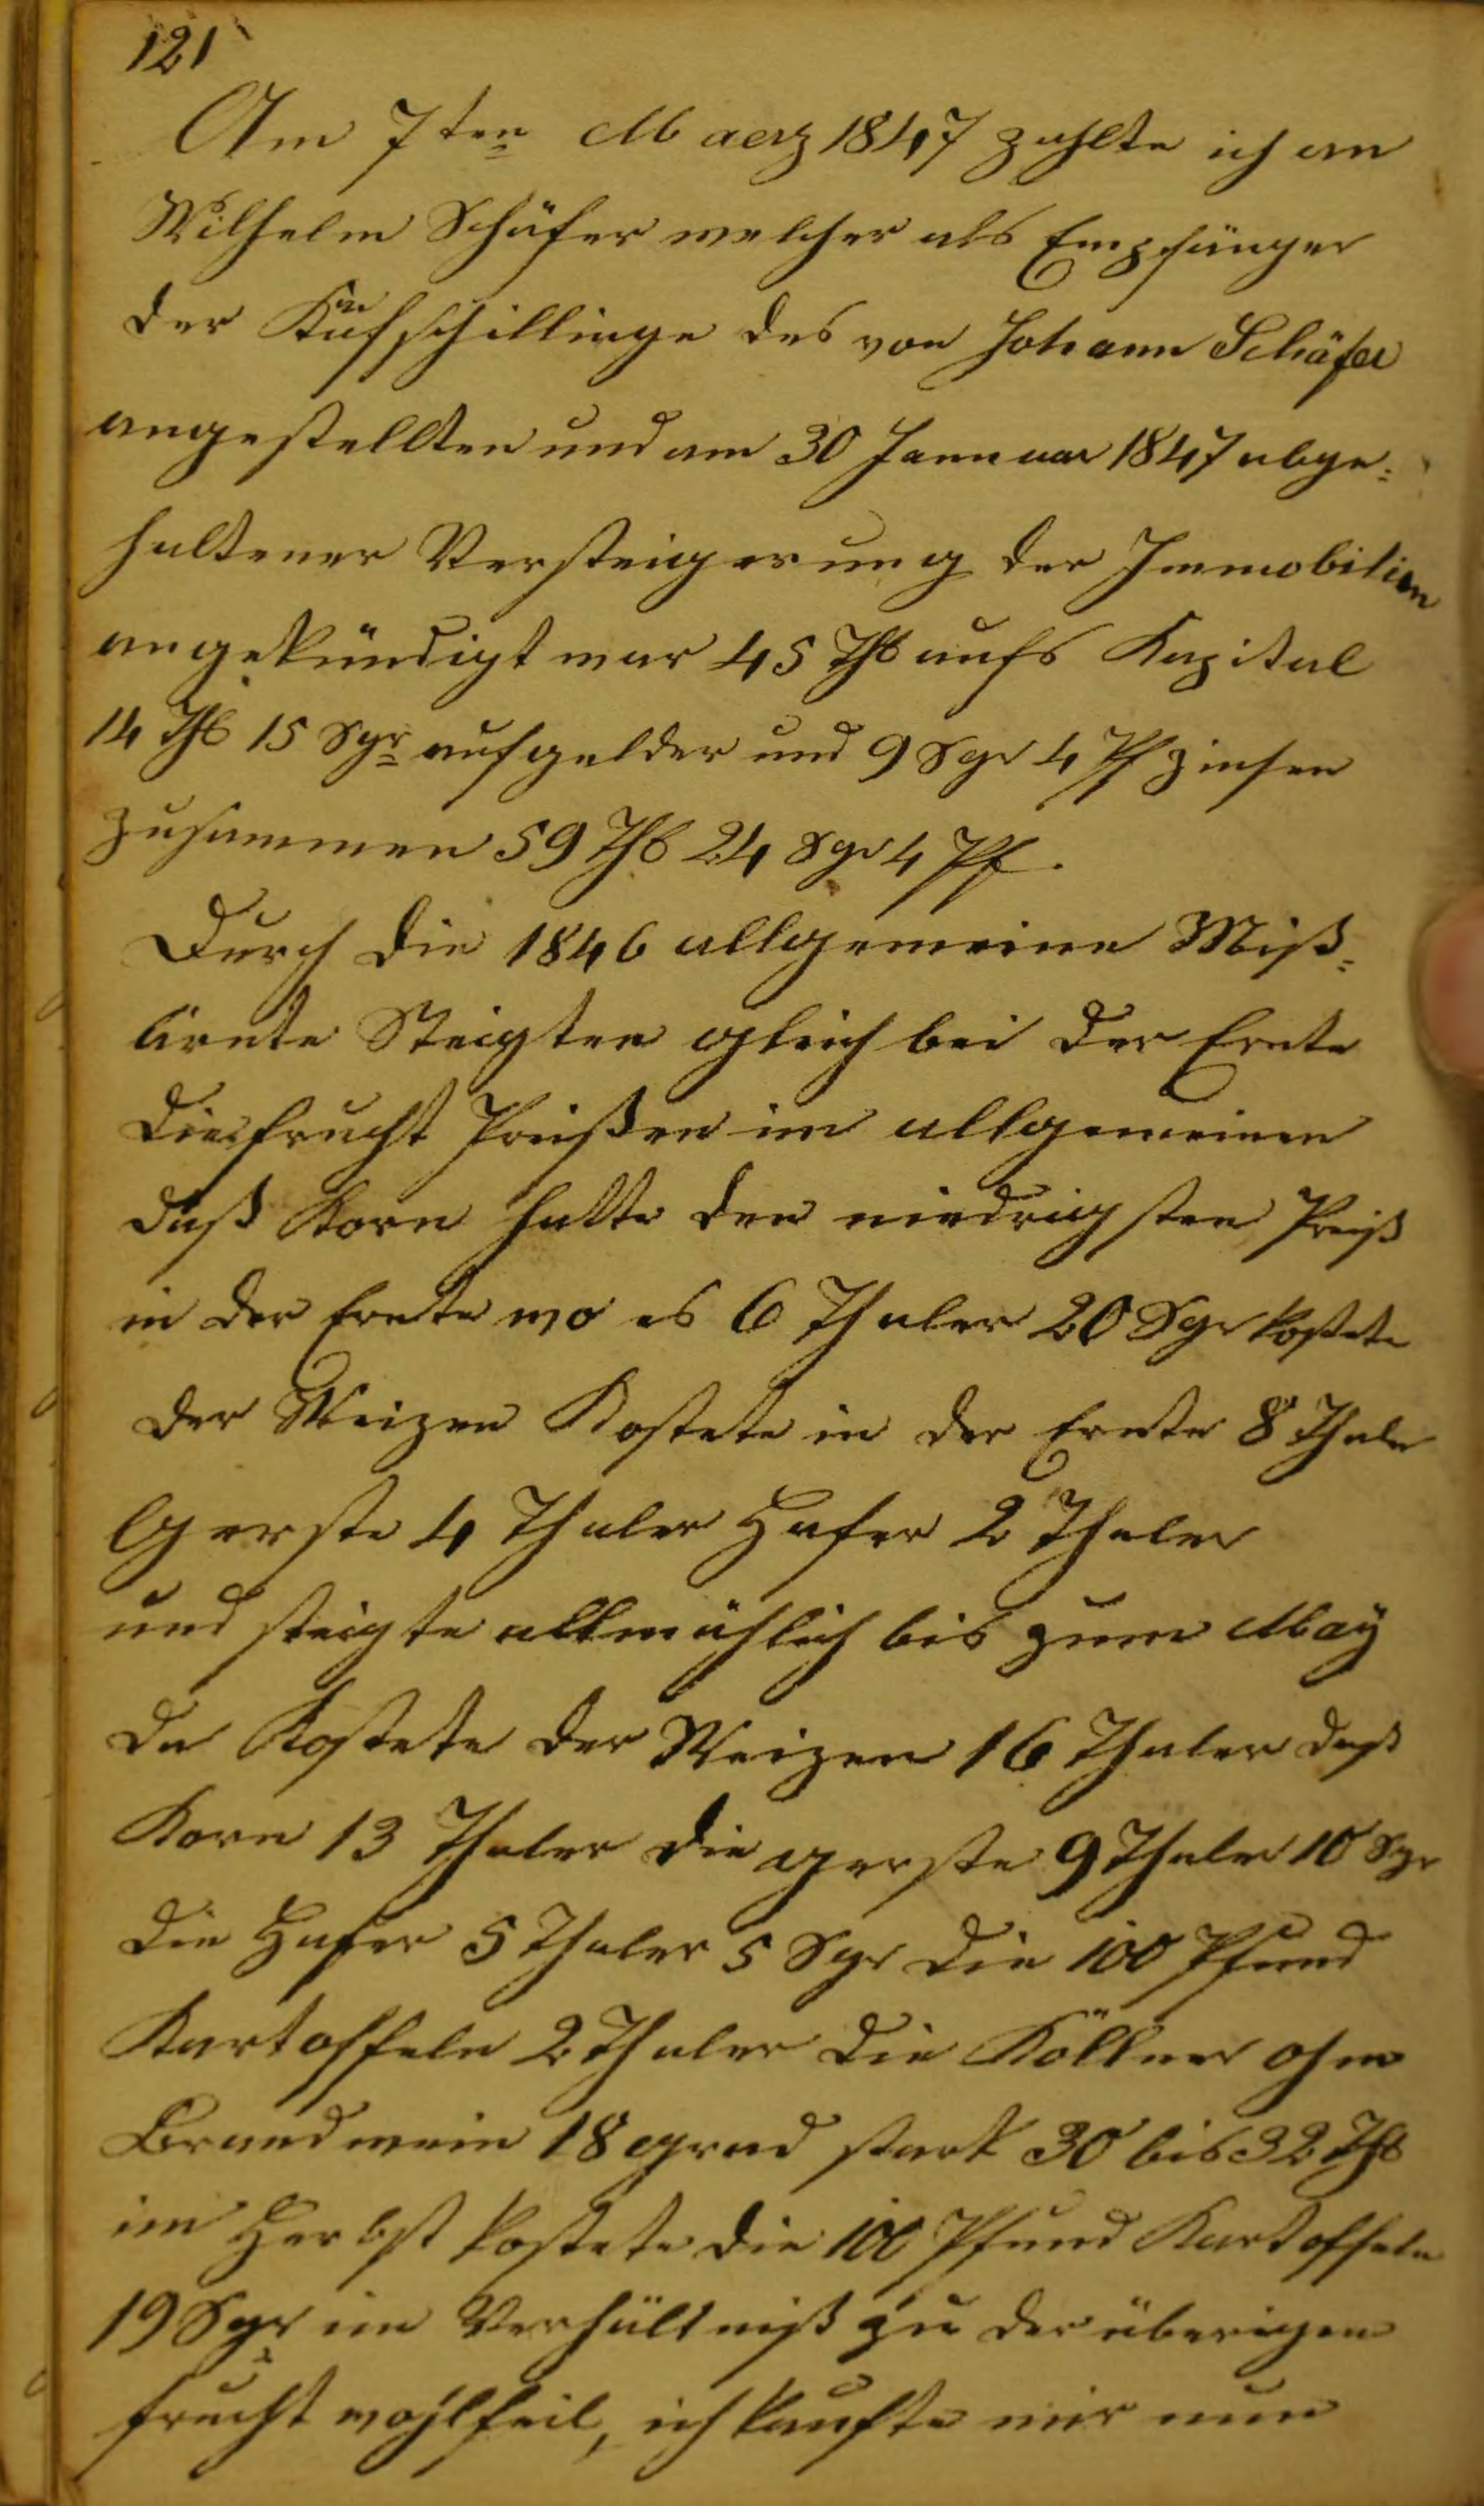 121
Am 7ten Maerz 1847 zahlte ich an
Wilhelm Schäfer welcher als Empfänger
der Kaufschillinge des von Johann Schäfer
angestellten und am 30 Jannuar 1847 abge=
haltener Versteigerung der Immobilien
angekündigt war 45 Thl aufs Kapital
14 Thl 15 Sgr aufgelder und 9 Sgr 4 Pf zinsen
zusammen 59 Thl 24 Sgr 4 Pf.
Durch die 1846 allgemeine Miß=
ärnte Steigten gleich bei der Ernte
die frucht Preißen im allgemeinen
daß Korn hatte den niedrigsten Preiß
in der Ernte wo es 6 Thaler 20 Sgr kostete
der Weizen Kostete in der Ernte 8 Thaler
Gerste 4 Thaler Hafer 2 Thaler
und steigte allmählich bis zum May
da Kostete der Weizen 16 Thaler daß
Korn 13 Thaler die gerste 9 Thaler 10 Sgr
die Hafer 5 Thaler 5 Sgr die 100 Pfund
Kartoffeln 2 Thaler die Köllner ohm
Brandwein 18 grad stark 30 bis 32 Thl
im Herbst kostete die 100 Pfund Kartoffeln
19 Sgr im Verhältniß zu der überigen
frucht wohlfeil, ich kaufte mir nun